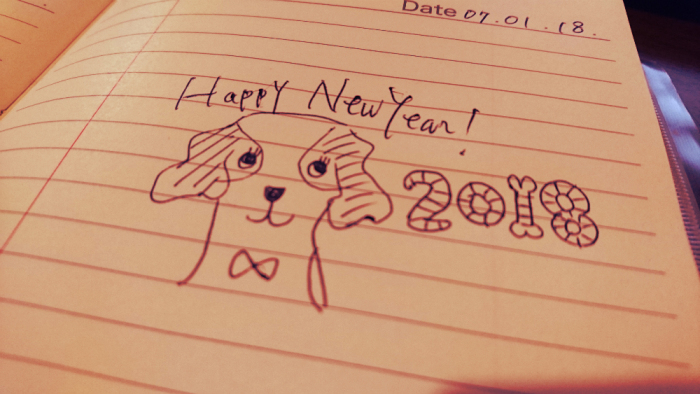 Date 07.01.18.
Happy New Year!
2018